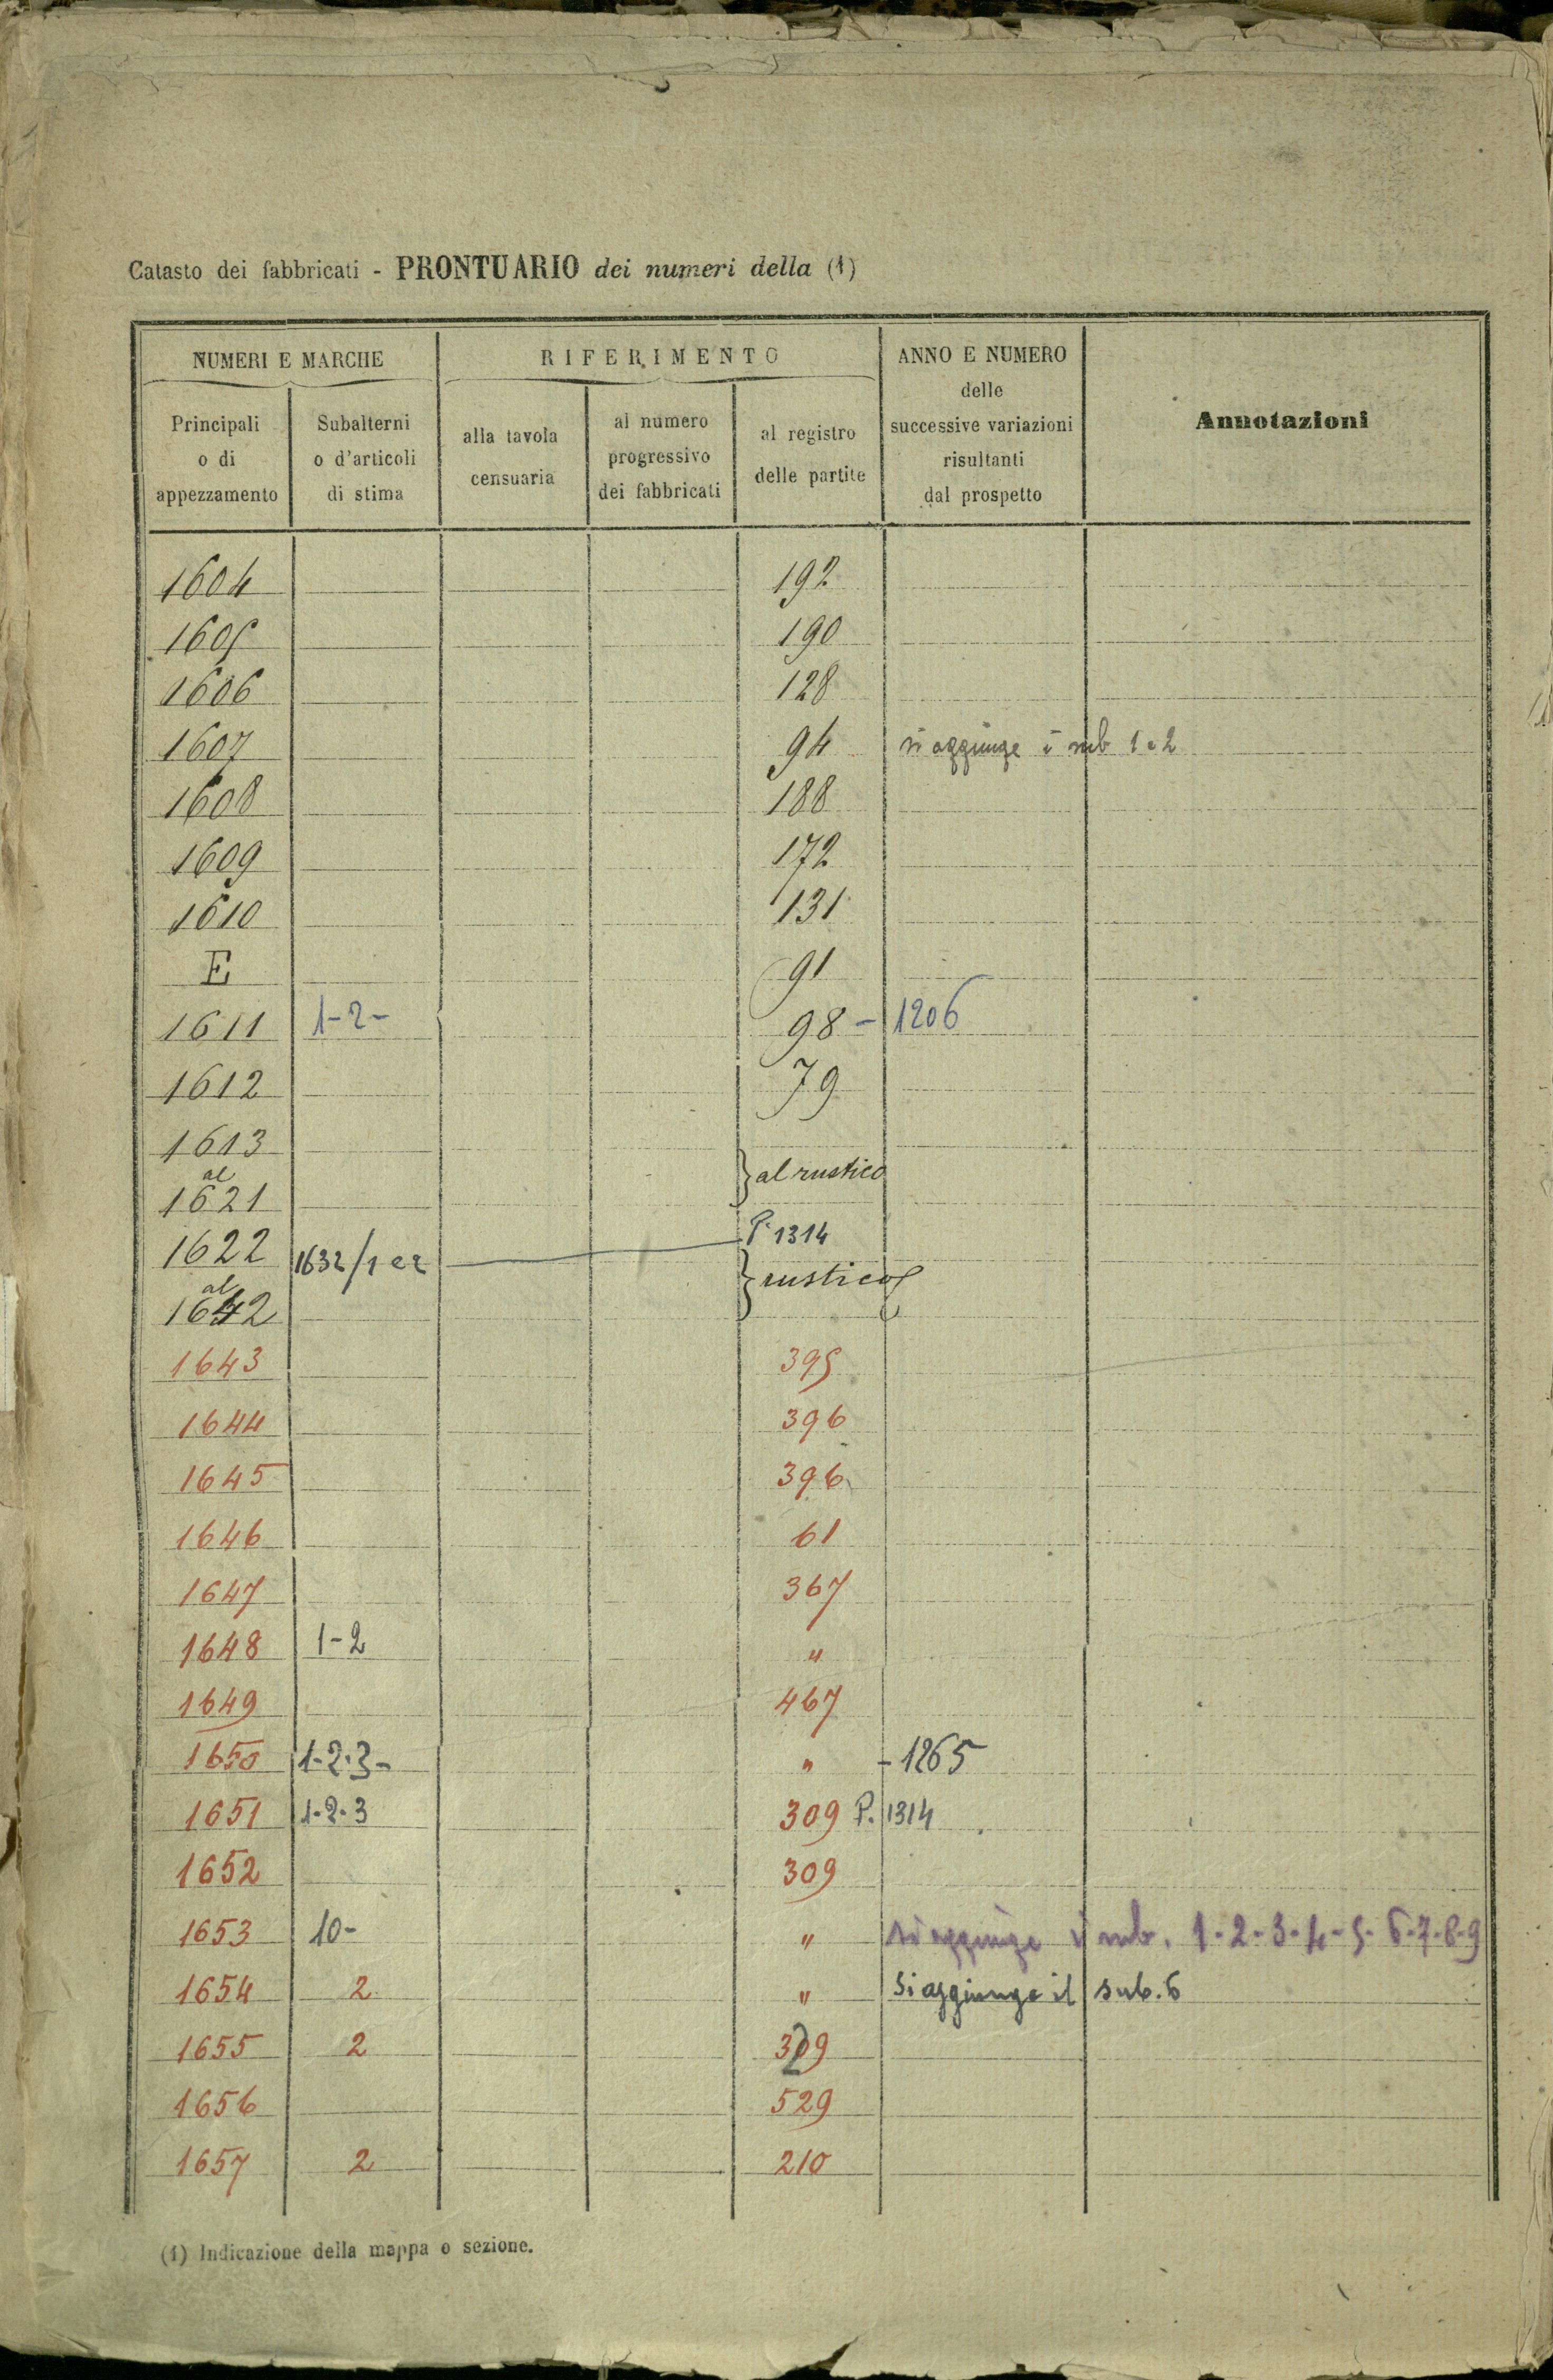 Catasto dei fabbricati - PRONTUARIO dei numeri della (1)
NUMERI E MARCHE
RIFERIMENTO
ANNO E NUMERO
delle
successive variazioni
risultanti
dal prospetto
Annotazioni
Principali
o di
appezzamento
Subalterni
o d'articoli
di stima
alla tavola
censuaria
al numero
progressivo
dei fabbricati
al registro
delle partite
1604 192
1605 190
1606 128
1607 94 si aggiunge i sub 1 e 2
1608 188
1609 172
1610 131
E 91
1611 1-2- 98 - 1206
1612 79
1613
al } al rustico
1621
1622 1632/1 e 2 P. 1314
al } rustico
1642
1643 395
1644 396
1645 396
1646 61
1647 367
1648 1-2 "
1649 467
1650 1-2-3- " - 1265
1651 1-2-3 309 P. 1314
1652 309
1653 10- " si aggiunge i sub. 1-2-3-4-5-6-7-8-9
1654 2 " Si aggiunge il sub. 6
1655 2 329
1656 529
1657 2 210
(1) Indicazione della mappa o sezione.